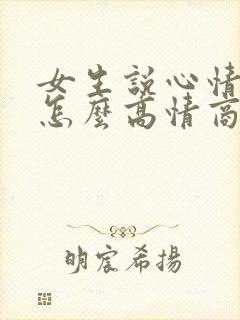 女生說心情
怎麼高情商
明宸希揚